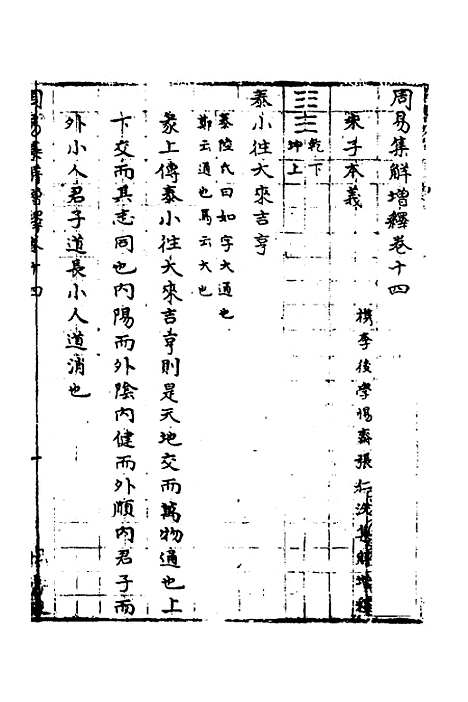 周易集解增釋卷十四
朱子本義
檇李後學惕齋張仁浹集解增釋
乾下
坤上
泰小往大來吉亨
泰陸氏曰如字大通也
鄭云通也馬云大也
彖上傳泰小往大來吉亨則是天地交而萬物通也上
下交而其志同也內陽而外陰內健而外順內君子而
外小人君子道長小人道消也
周易集解增釋卷十四
一